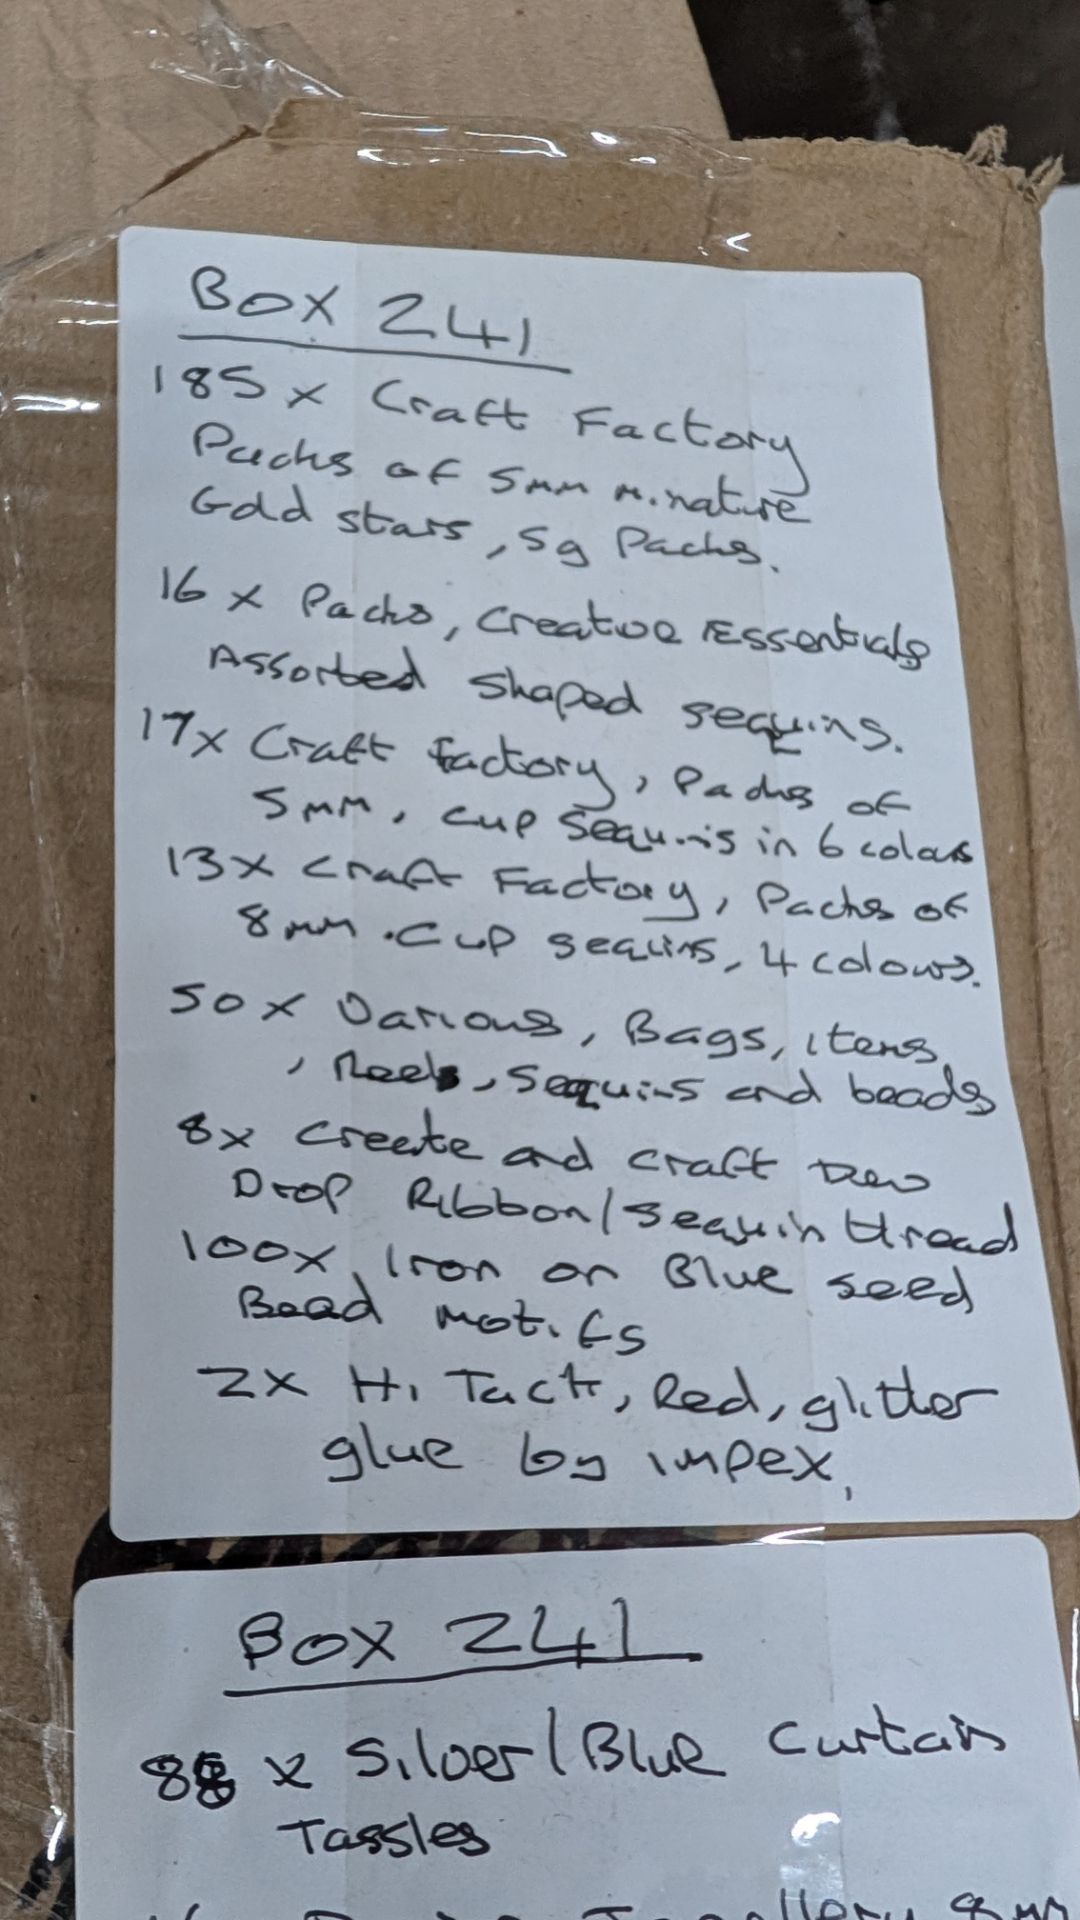 BOX 241
185 x Craft Factory
Packs of 5mm Minature
Gold stars, 5g Packs.
16 x Packs, Creative Essentials
Assorted shaped sequins.
17x Craft factory, Packs of
5mm, cup Sequins in 6 colours
13x Craft Factory, Packs of
8mm. Cup sequins, 4 colours.
50x Various, Bags, items
, Reels, Sequins and beads
8x Create and craft Dew
Drop Ribbon/Sequin thread
100x, Iron on Blue seed
Bead Motifs
2x Hi Tack, Red, glitter
glue by impex,
BOX 241
88 x Silver/Blue Curtain
Tassles
8mm